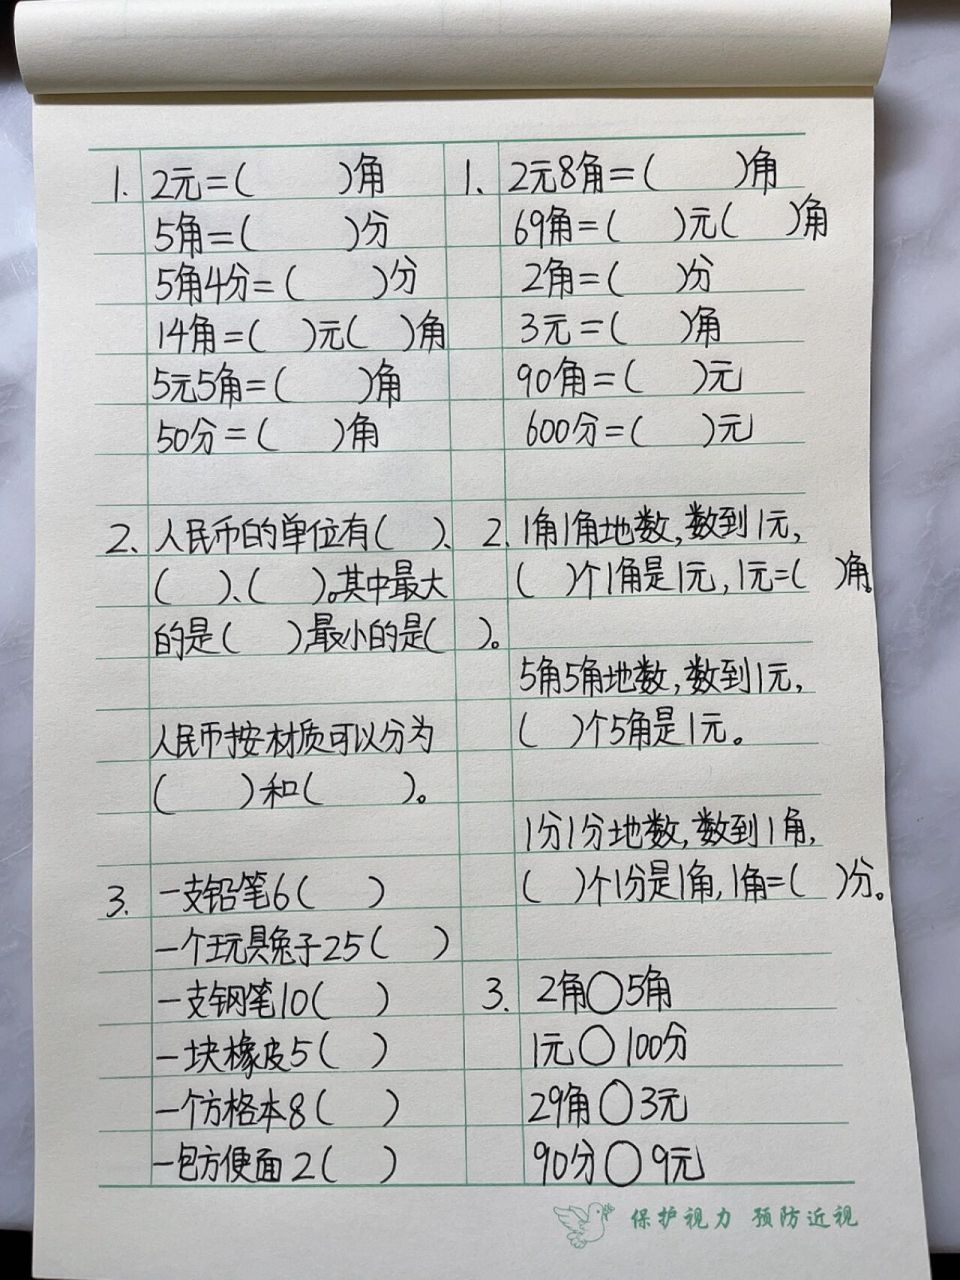 1. 2元=( )角
5角=( )分
5角4分=( )分
14角=( )元( )角
5元5角=( )角
50分=( )角
2、人民币的单位有( )、
( )、( )。其中最大
的是( ),最小的是( )。
人民币按材质可以分为
( )和( )。
3. 一支铅笔6( )
一个玩具兔子25( )
一支钢笔10( )
一块橡皮5( )
一个方格本8( )
一包方便面2( )
1、2元8角=( )角
69角=( )元( )角
2角=( )分
3元=( )角
90角=( )元
600分=( )元
2. 1角1角地数,数到1元,
( )个1角是1元,1元=( )角。
5角5角地数,数到1元,
( )个5角是1元。
1分1分地数,数到1角,
( )个1分是1角,1角=( )分。
3. 2角○5角
1元○100分
29角○3元
90分○9元
保护视力 预防近视